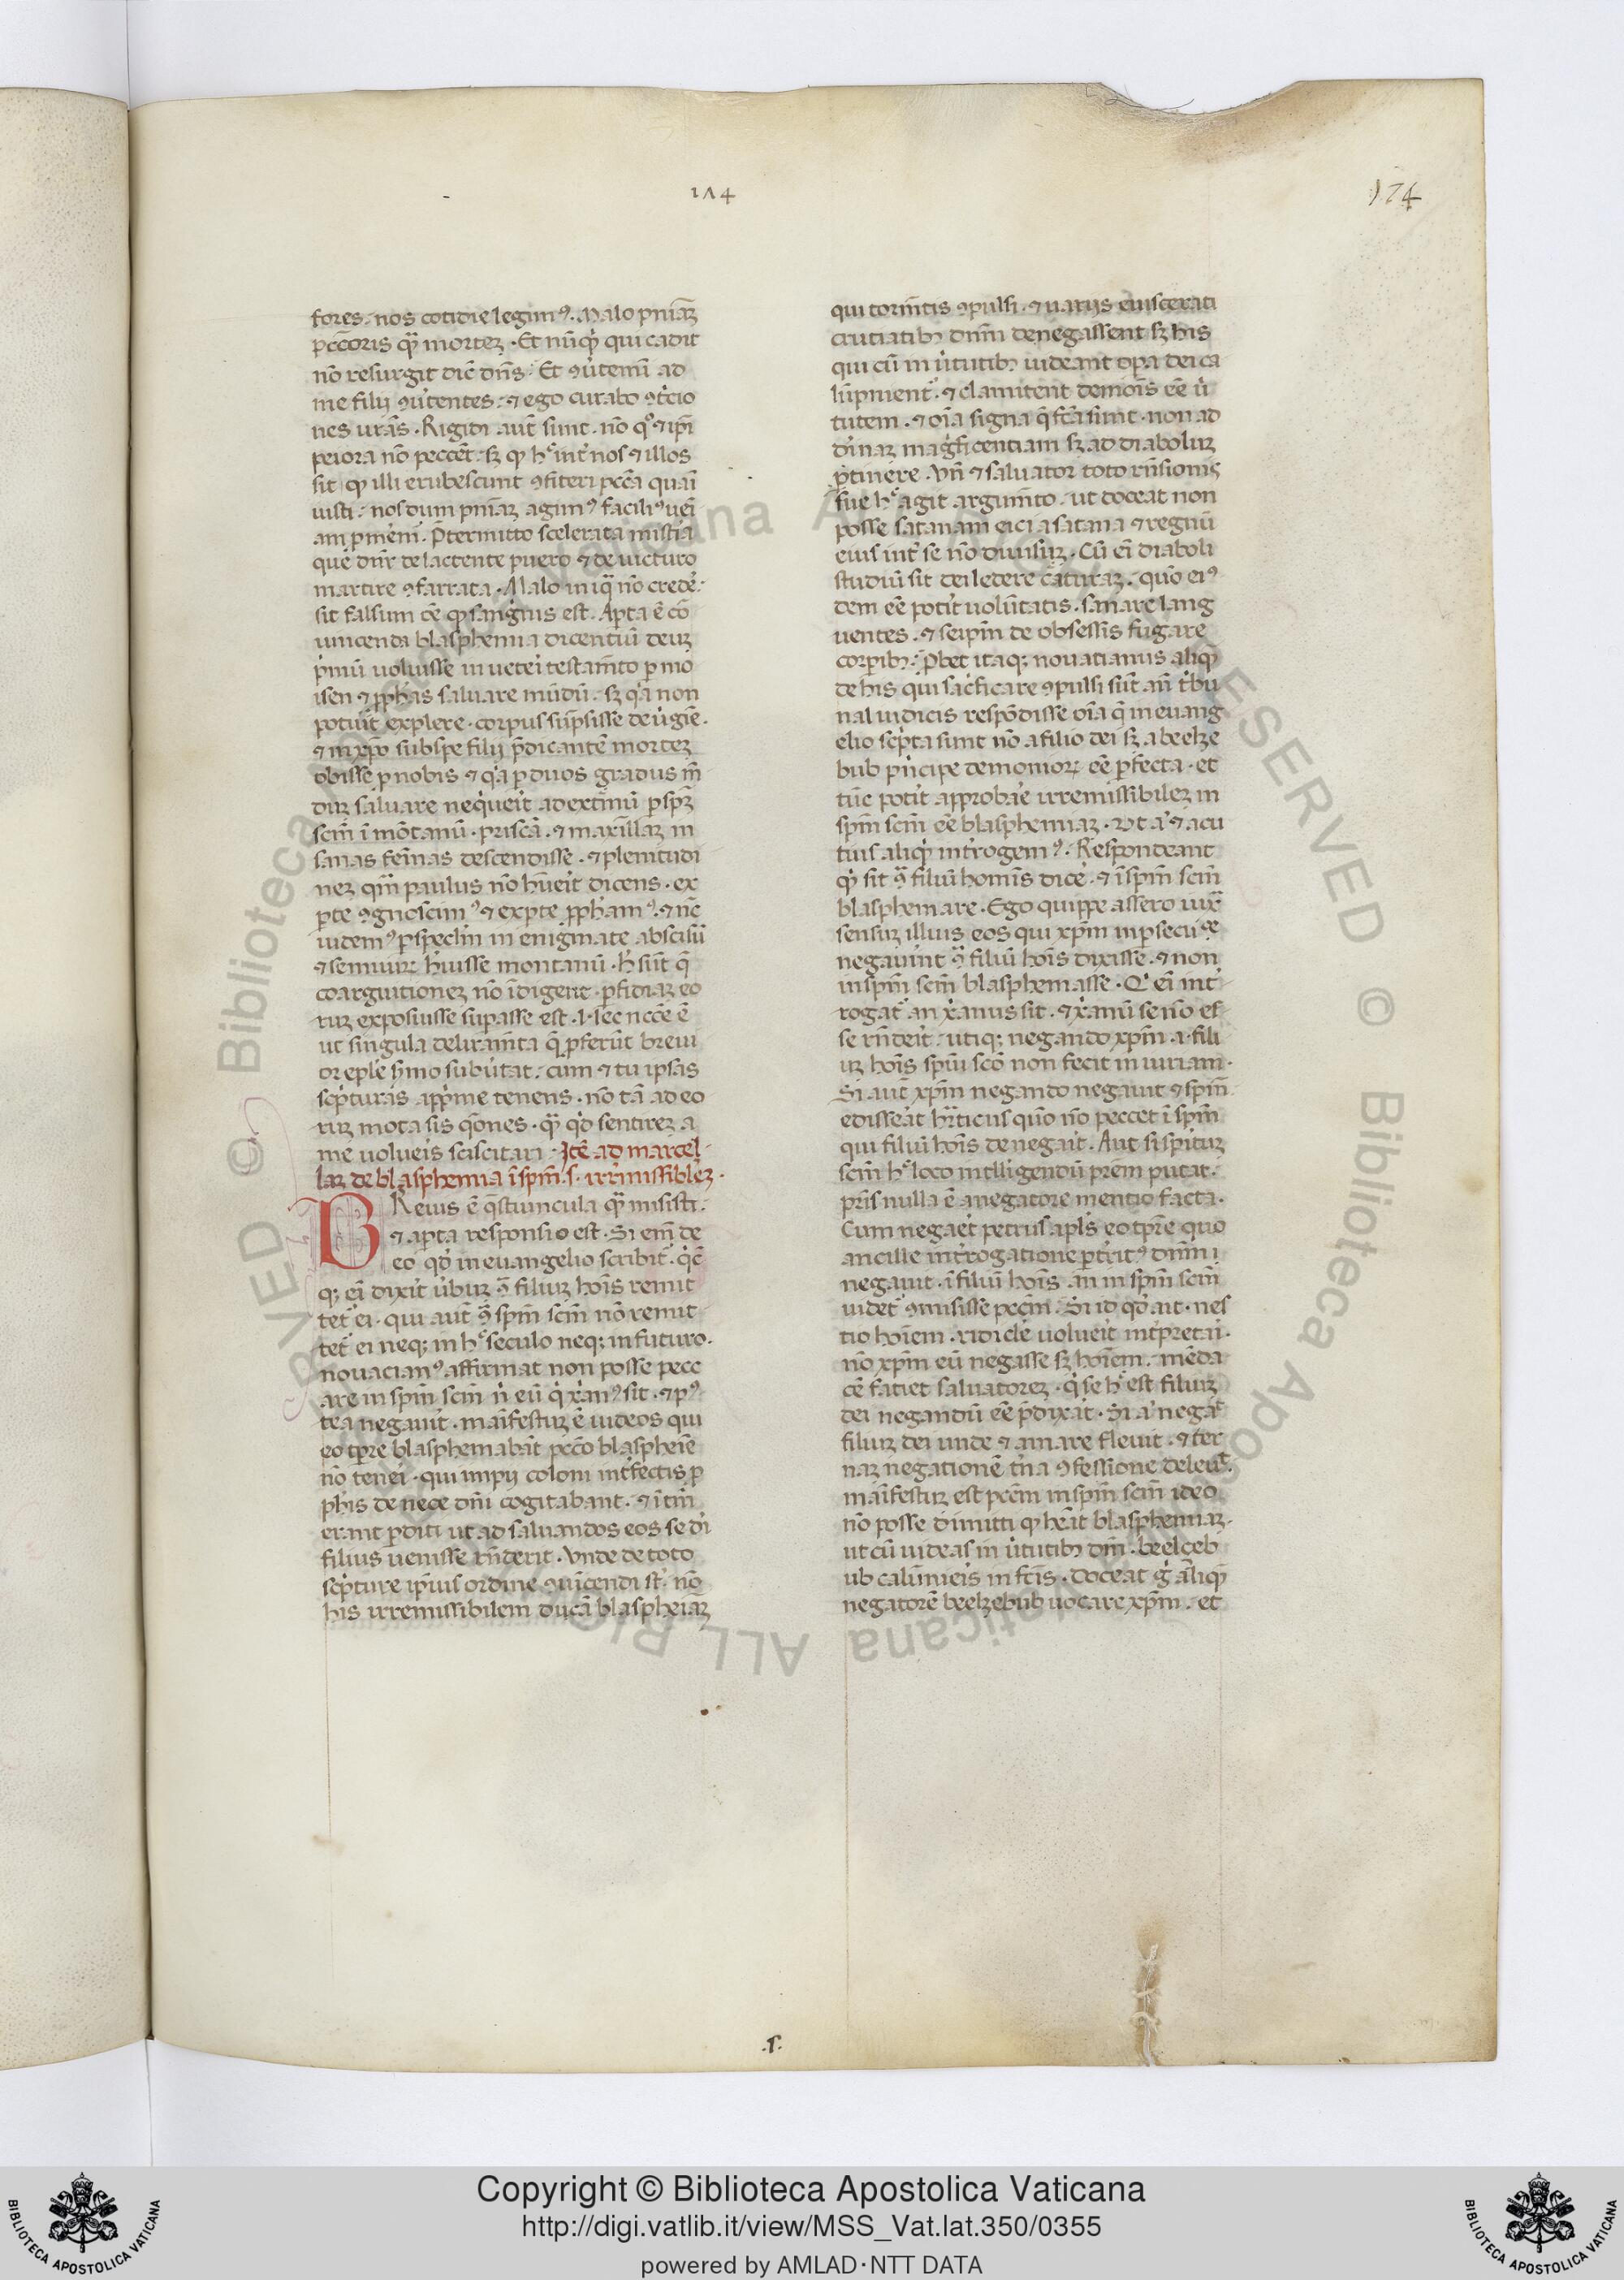 174
174
fores. nos cotidie legimꝰ. Malo pnīaꝫ
pccōris qꝫ morteꝫ. Et nūqͥd qui cadit
nō resurgit dic̄ dn̄s. Et ꝯuertemī ad
me filij ꝯuertentes. ⁊ ego curabo ꝯtricio
nes ur̄as. Rigidi aut̄ sunt. nō qͦ ⁊ ip̄i
peiora nō peccēt. sꝫ ꝙ hͨ int̓ nos ⁊ illos
sit ꝙ illi erubescunt ꝯfiteri pcc̄a quasi
iusti. nos dum pn̄iaꝫ agimꝰ faciliꝰ ueni
am ꝓmerem̄. p̄termitto scelerata mist̓ia
que dn̄r de lactente puero ⁊ de uicturo
martire ꝯfarrata. Malo iniqͣ nō crede̓.
sit falsum ēē ꝙ sanguīs est. Apta ē cō
uincenda blasphemia dicentiū deuꝫ
p̓mū uoluisse in uete̓i testam̄to ꝑ mo
isen ⁊ ꝓph̄as saluare mūdū. sꝫ qͥa non
potuit explere. corpus sūpsisse de uirgīe.
⁊ in xp̄o sub spe filij p̄dicantē morteꝫ
obisse ꝓ nobis ⁊ qͥa ꝑ duos gradus mū
duꝫ saluare neqͥuerit ad extremū ꝑ sp̄ꝫ
scm̄ ī mōtanū. priscā. ⁊ maxillaꝫ in
sanas femīas descendisse. ⁊ plenitudi
neꝫ qm̄ paulus nō hūerit dicens. ex
ꝑte ꝯgnoscimꝰ ⁊ ex ꝑte ꝓph̄amꝰ. ⁊ nc̄
uidemꝰ ꝑ speclm̄ in enigmate abscisū
⁊ semiuiꝝ h̓uisse montanū. h̓ sūt q̄
coarguitioneꝫ nō īdigent. ꝑfidiaꝫ eo
rum exposuisse supasse est. ne
ut singula deliram̄ta q̄ ꝓferūt breui
or eple sermo subuertat. cum ⁊ tu ipsas
scripturas appͥme tenens. nō tā ad eo
rum mota sis qōnes. qͣꝫ qͥd sentireꝫ a
me uolueris sciscitari. Itē ad marcel
laꝫ de blasphemia ī spm̄. s. irremissiblēꝫ.
BReuis ē q̄stiuncula qͣꝫ misisti.
⁊ apta responsio est. Si eni de
eo qͥd in euangelio scribit̓. qͥc
qꝫ ei dixit uerbuꝫ ꝯͣ filiuꝫ hoīs remit
tet̓ ei. qui aut̄ ꝯͣ spm̄ scm̄ nō remit
tet̓ ei neqꝫ in hͦ seculo neqꝫ in futuro.
nouacianꝰ affirmat non posse pecc
are in spm̄ scm̄ nͥ eū qͥ xͥanꝰ sit. ⁊ pꝰ
tea negauit. manīfestuꝫ ē iudeos qui
eo tp̄re blasphemabāt pccō blaspheīe
nō teneri. qui impij coloni int̓fectis ꝓ
phīs de nece dn̄i cogitabant. ⁊ ītm̄
erant ꝑditi ut ad saluandos eos se di
filius uenisse rn̄derit. Vnde de toto
scripture ipsius ordine ꝯuincendi st̄. nō
his irremissibilem dictā blaspheīaꝫ
qui torm̄tis ꝯpulsi. ⁊ uarijs euiscerati
cruciatibꝫ dnm̄ denegassent sꝫ his
qui cū in uirtutibꝫ uideant oꝑa dei ca
lūpnient̓. ⁊ clamitent demoīs eē uir
tutem. ⁊ oīa signa q̄ fc̄a sunt. non ad
diuinaꝫ magͥficentiam sꝫ ad diaboluꝫ
ꝑtinere. Vn̄ ⁊ saluator toto rn̄sionis
sue hͨ agit argum̄to. ut doceat non
posse satanam eici a satana ⁊ regnū
eius int̓ se nō diuisuꝫ. Cū ei diaboli
studiū sit dei ledere creaturaꝫ. quō eiꝰ
dem eē poterit uolūtatis. sanare lang
uentes. ⁊ seipm̄ de obsessis fugare
corpibꝫ. Probet itaqꝫ nouatianus aliqͣꝫ
de his qui sacͥficare ꝯpulsi sūt an̄ tͥbu
nal iudicis respōdisse oīa q̄ in euang
elio scripta sunt nō a filio dei sꝫ a beelze
bub pͥncipe demonioꝝ eē ꝑfecta. et
tūc poterit approbare irremissibileꝫ in
spm̄ scm̄ eē blasphemiaꝫ. Vt aͥ ⁊ acu
tius aliqͥd int̓rogemꝰ. Respondeant
qͥd sit ꝯͣ filiū hominis dice̓. ⁊ ī spm̄ scm̄
blasphemare. Ego quippe assero iuxͣ
sensuꝫ illius eos qui xp̄m in ꝑsecutiōe
negauīnt ꝯͣ filiū hoīs dixisse. ⁊ non
in spm̄ scm̄ blasphemasse. Qͥ ei int̓
rogatꝰ an xͥanus sit. ⁊ xͥanū se nō es
se rn̄derit. utiqꝫ negando xp̄m .i. fili
uꝫ hoīs spūi scō non fecit iniuriam.
Si aut̄ xp̄m negando negauit ⁊ spm̄
edisserat hͬticus quō nō peccet ī spm̄
qui filiū hoīs denegarit. Aut si spirituꝫ
scm̄ hͦ loco intelligendū prēm putat.
pris nulla ē a negatore mentio facta.
Cum negaret petrus apl̄s eo tp̄re quo
ancille int̓rogatione ꝑt̓ritꝰ dnm̄
negauit. ī filiū hoīs. an in spm̄ scm̄
uidet̓ ꝯmisisse pccm̄. Si id qd̓ ait. nes
cio hoīem. ridicule uoluerit int̓pretari.
nō xp̄m eū negasse sꝫ hoīem. mēda
cē faciet saluatoreꝫ. qͥ se hͦ est filiuꝫ
dei negandū eē p̄dixat. Si aͥ negat
filiuꝫ dei unde ⁊ amare fleuit. ⁊ ter
naꝫ negationē trina ꝯfessione deleuit.
manīfestuꝫ est pccm̄ in spm̄ scm̄ ideo
nō posse dimitti ꝙ hēat blasphemiaꝫ.
ut cū uideas in uirtutibꝫ dm̄. beelceb
ub calūnieris in fc̄is. doceat gͥ aliqͣꝫ
negatorē beelzebub uocare xp̄m. et
.s.
© Biblioteca Apostolica Vaticana ALL RIGHTS RESERVED
© Biblioteca Apostolica Vaticana ALL RIGHTS RESERVED
Copyright © Biblioteca Apostolica Vaticana
http://digi.vatlib.it/view/MSS_Vat.lat.350/0355
powered by AMLAD·NTT DATA
BIBLIOTECA APOSTOLICA VATICANA
BIBLIOTECA APOSTOLICA VATICANA